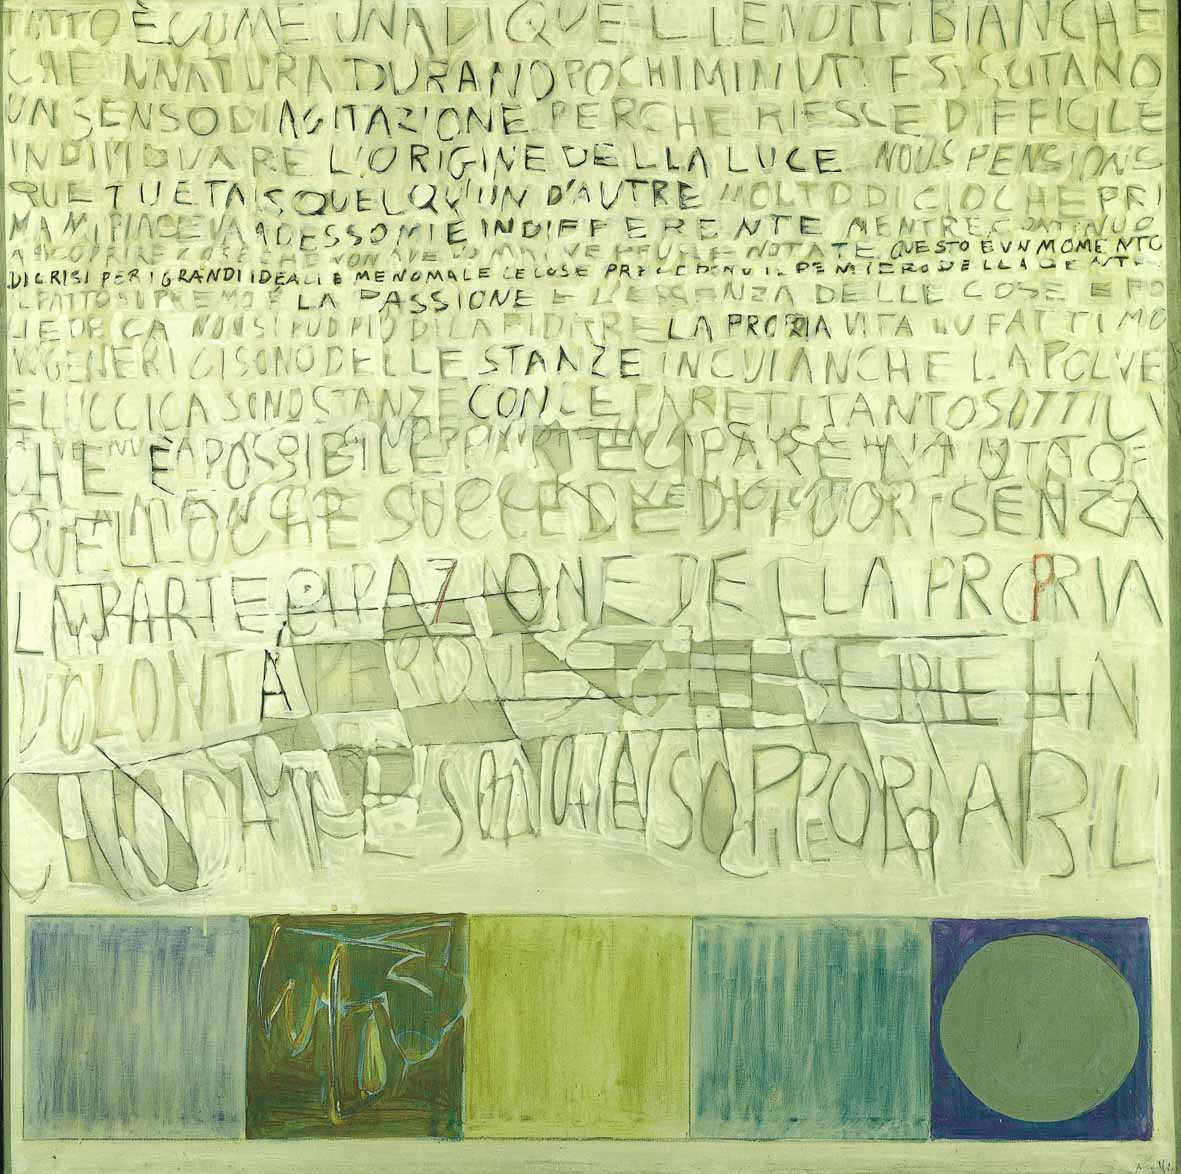 TUTTO È COME UNA DI QUELLE NOTTI BIANCHE
CHE IN NATURA DURANO POCHI MINUTI E SUSCITANO
UN SENSO DI AGITAZIONE PERCHE RIESCE DIFFICILE
INDIVIDUARE L'ORIGINE DELLA LUCE NOUS PENSIONS
QUE TU ETAIS QUELQU'UN D'AUTRE MOLTO DI CIO CHE PRI
MA MI PIACEVA ADESSO MI E INDIFFERENTE MENTRE CONTINUO
A SCOPRIRE COSE CHE NON AVEVO MAI NEPPURE NOTATE QUESTO E UN MOMENTO
DI CRISI PER I GRANDI IDEALI E MENOMALE LE COSE PRECEDONO IL PENSIERO DELLA GENTE
IL FATTO SUPREMO È LA PASSIONE E L'ESSENZA DELLE COSE E PO
NON SI PUO PIU DILAPIDARE LA PROPRIA VITA
CI SONO DELLE STANZE IN CUI ANCHE LA POLVE
E LUCCICA SONO STANZE CON LE PARETI TANTO SOTTILI
CHE È POSSIBILE PARTECIPARE
QUELLO CHE SUCCEDE DI FUORI SENZA
LA PARTECIPAZIONE DELLA PROPRIA
VOLONTÀ PERDE SERIE IN
SOPPORTABIL